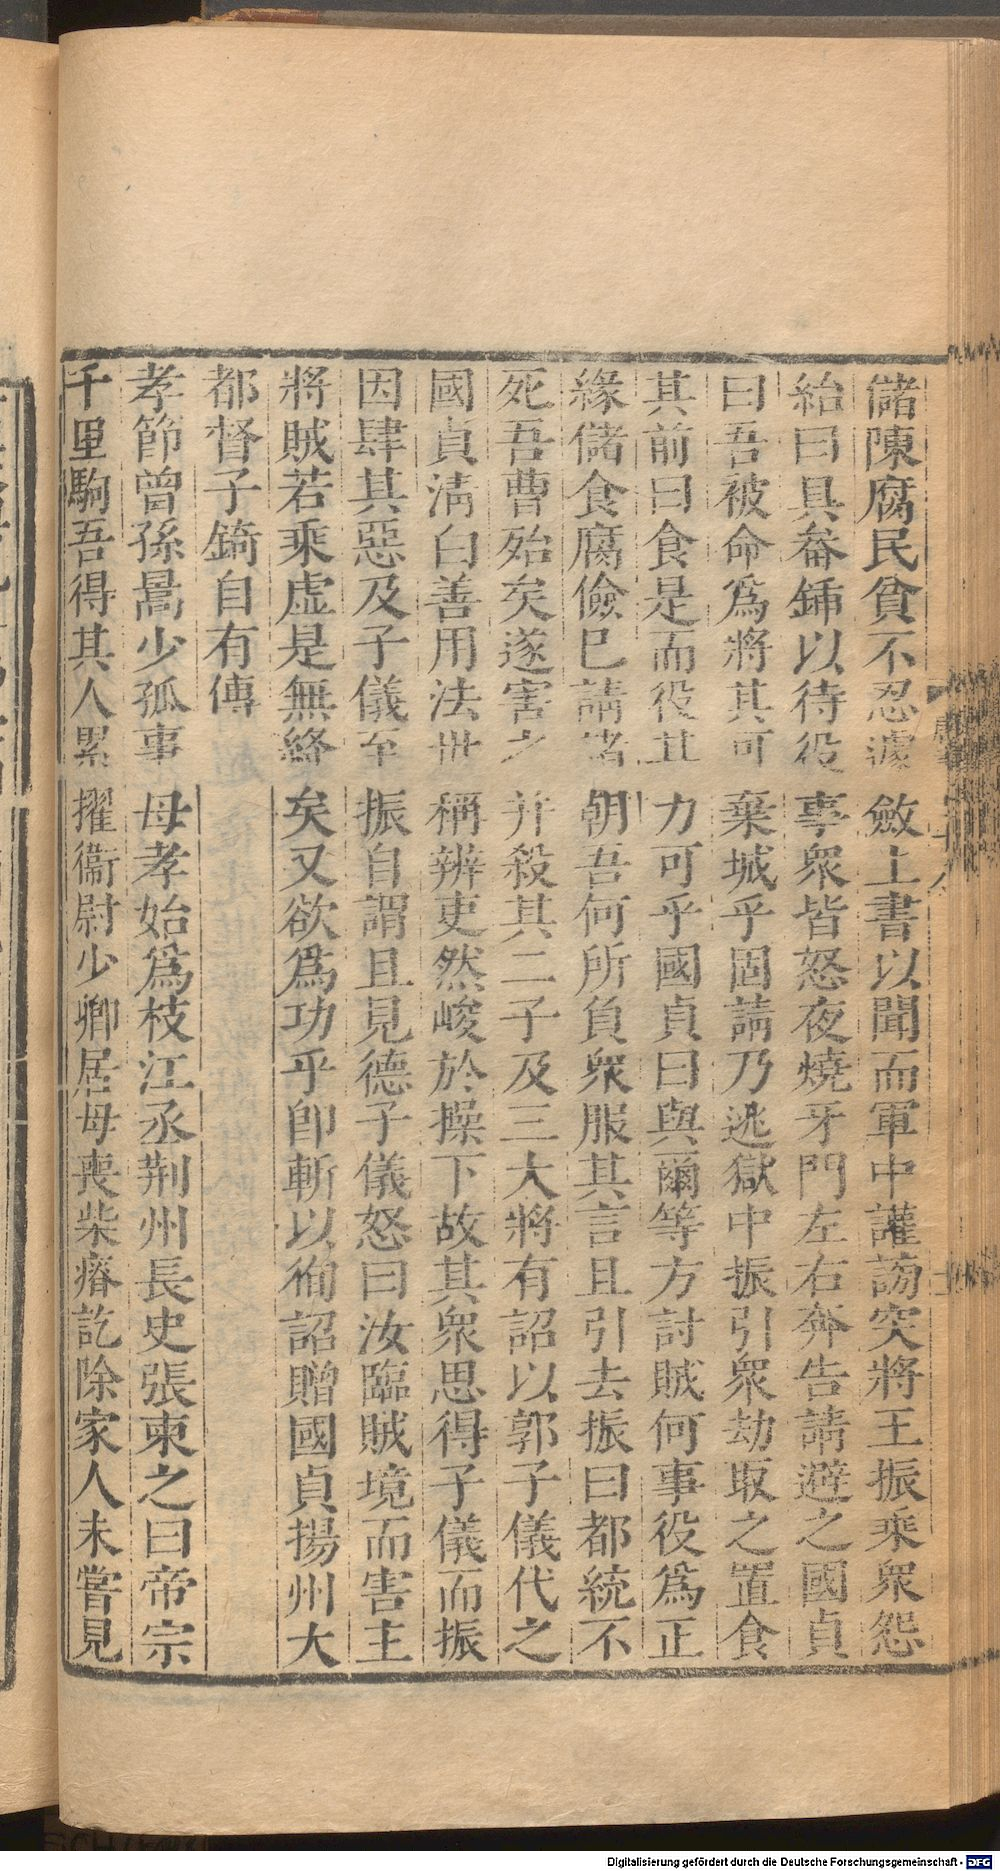 儲陳腐民貧不忍遽斂上書以聞而軍中讙謗突將王振乘衆怨
紿曰具畚鍤以待役事衆皆怒夜燒牙門左右奔告請避之國貞
曰吾被命爲將其可棄城乎固請乃逃獄中振引衆劫取之置食
其前曰食是而役其力可乎國貞曰與爾等方討賊何事役爲正
緣儲食腐儉已請諸朝吾何所負衆服其言且引去振曰都統不
死吾曹殆矣遂害之并殺其二子及三大將有詔以郭子儀代之
國貞淸白善用法世稱辨吏然峻於操下故其衆思得子儀而振
因肆其惡及子儀至振自謂且見德子儀怒曰汝臨賊境而害主
將賊若乘虛是無絳矣又欲爲功乎卽斬以徇詔贈國貞揚州大
都督子錡自有傳
孝節曾孫暠少孤事母孝始爲枝江丞荆州長史張柬之曰帝宗
千里駒吾得其人累擢衞尉少卿居母喪柴瘠訖除家人未嘗見
Digitalisierung gefördert durch die Deutsche Forschungsgemeinschaft - DFG